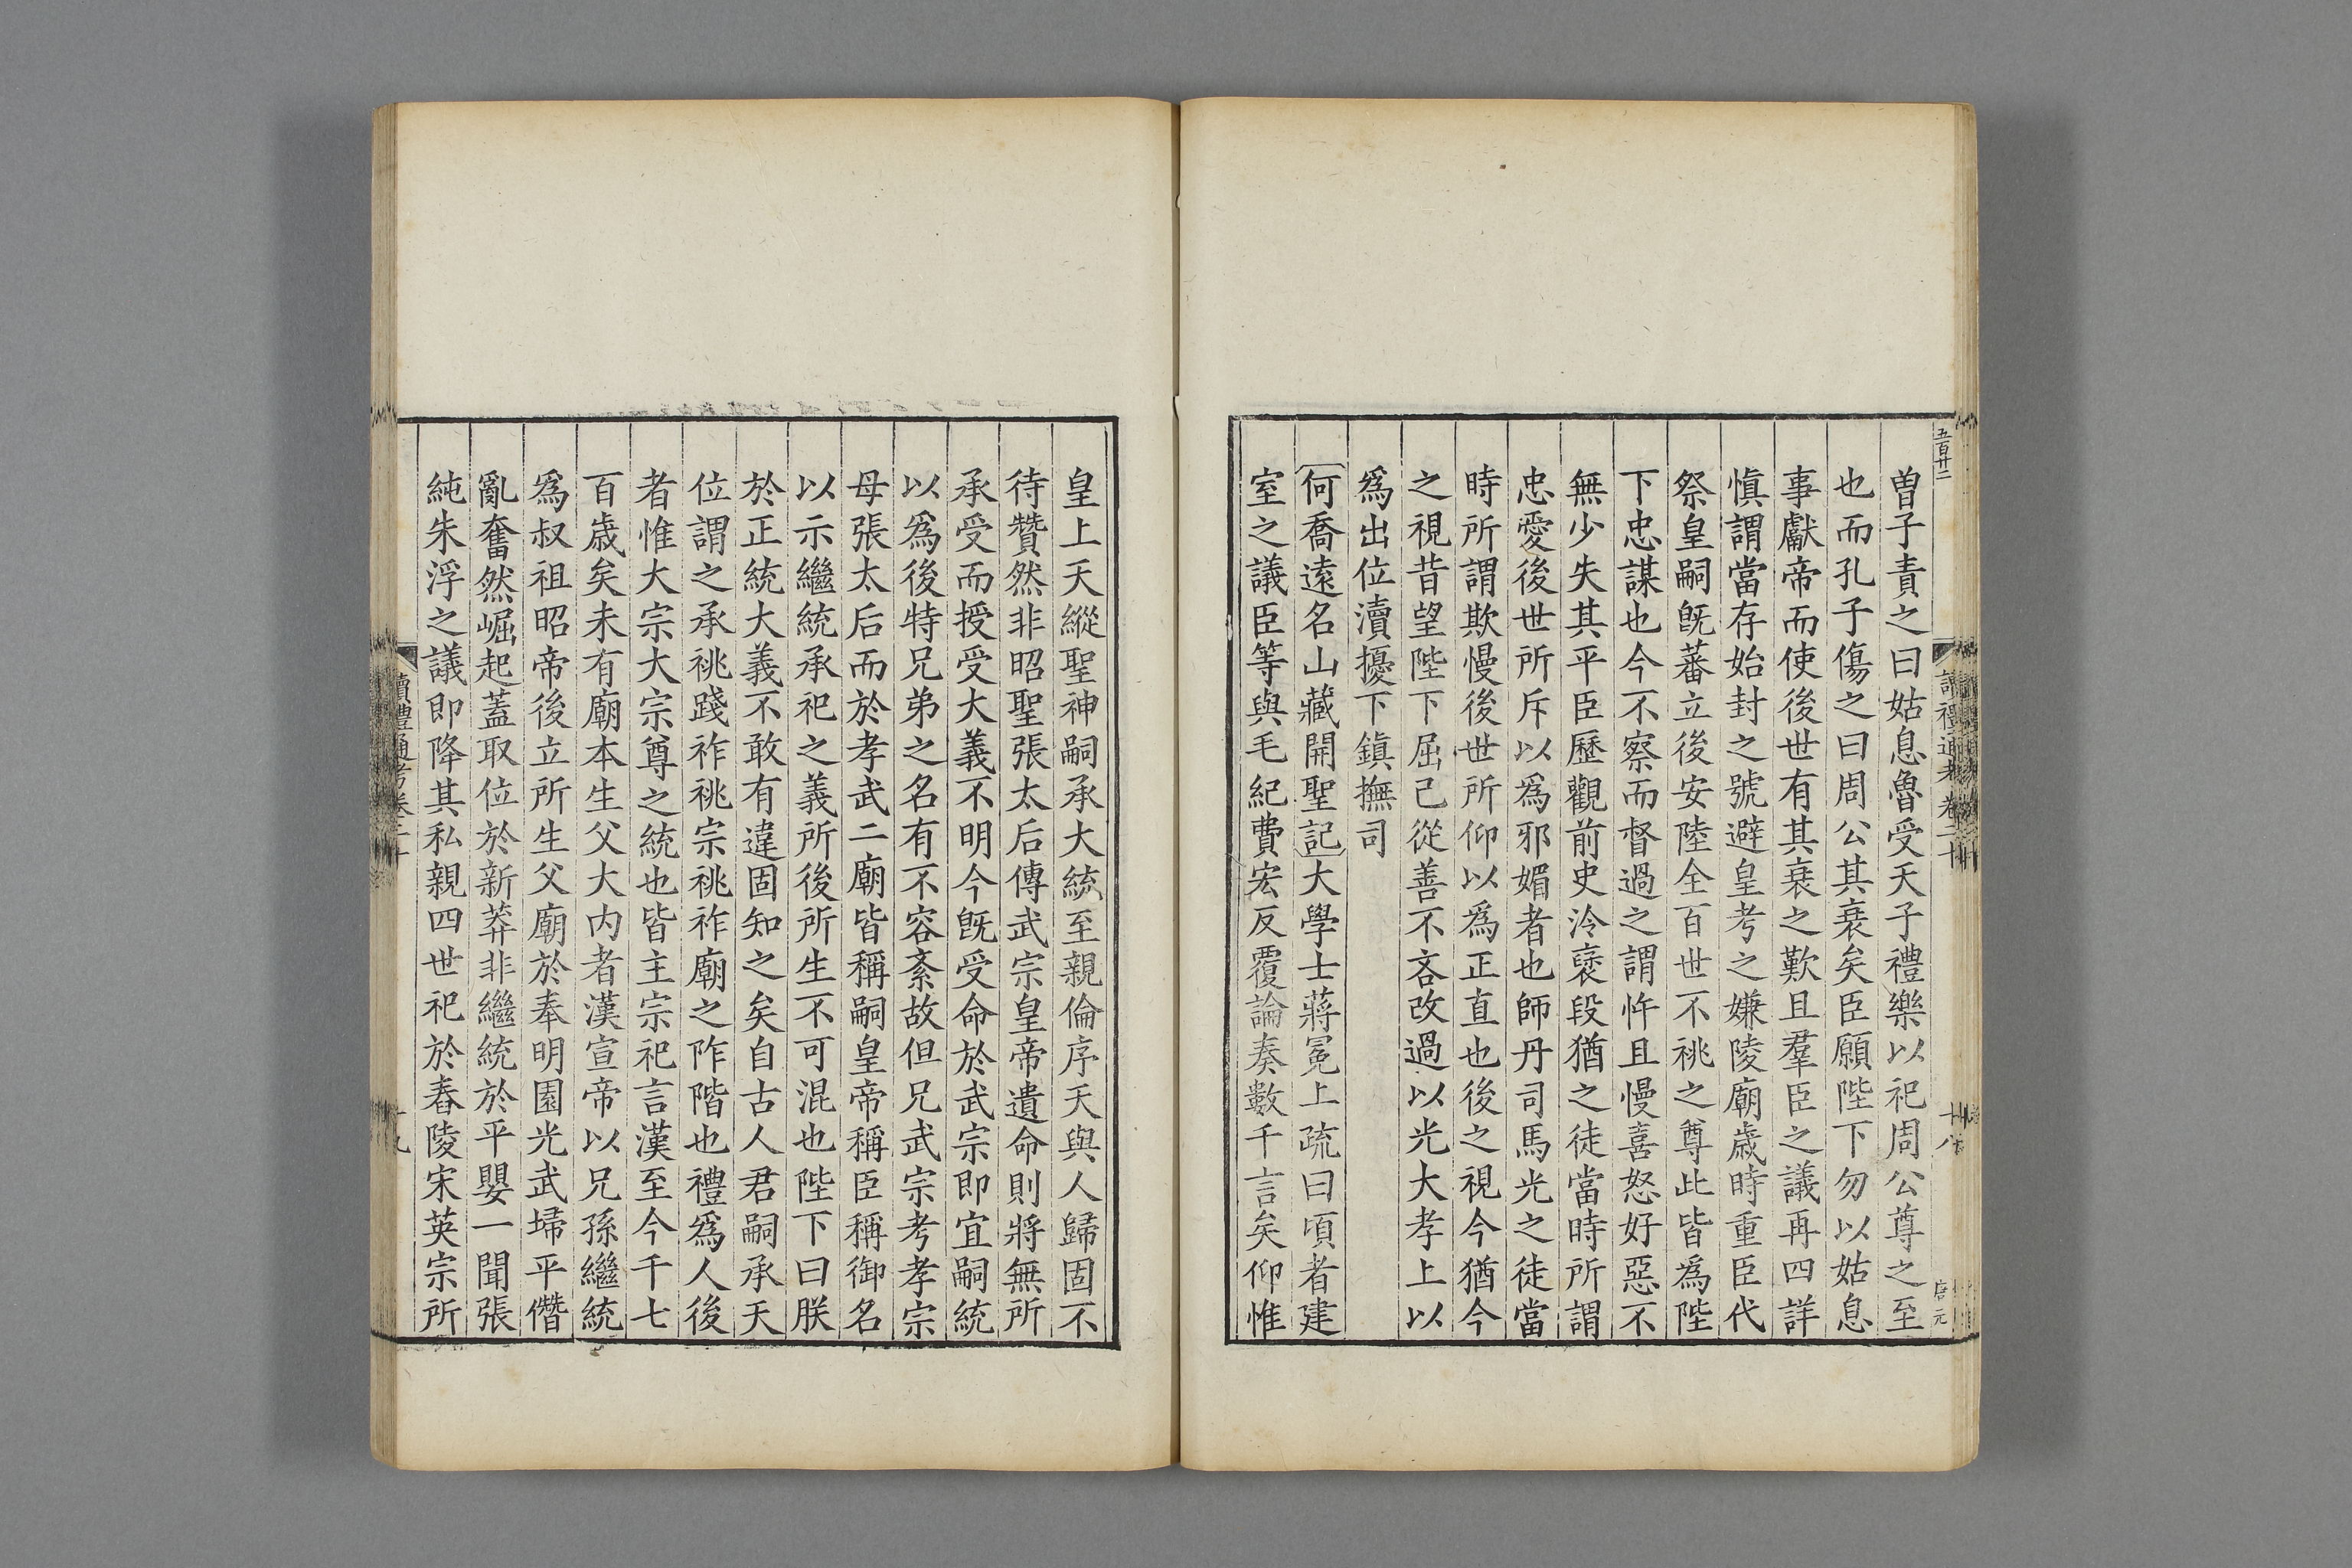 五百廿二
曾子責之曰姑息魯受天子禮樂以祀周公尊之至
也而孔子傷之曰周公其衰矣臣願陛下勿以姑息
事獻帝而使後世有其衰之歎且羣臣之議再四詳
愼謂當存始封之號避皇考之嫌陵廟歲時重臣代
祭皇嗣旣蕃立後安陸全百世不祧之尊此皆爲陛
下忠謀也今不察而督過之謂忤且慢喜怒好惡不
無少失其平臣歷觀前史泠襃段猶之徒當時所謂
忠愛後世所斥以爲邪媚者也師丹司馬光之徒當
時所謂欺慢後世所仰以爲正直也後之視今猶今
之視昔望陛下屈己從善不吝改過以光大孝上以
爲出位瀆擾下鎭撫司
何喬遠名山藏開聖記大學士蔣冕上疏曰頃者建
室之議臣等與毛紀費宏反覆論奏數千言矣仰惟
讀禮通考 卷二十
十八
唐元
皇上天縱聖神嗣承大統至親倫序天與人歸固不
待贊然非昭聖張太后傳武宗皇帝遺命則將無所
承受而授受大義不明今旣受命於武宗即宜嗣統
以爲後特兄弟之名有不容紊故但兄武宗考孝宗
母張太后而於孝武二廟皆稱嗣皇帝稱臣稱御名
以示繼統承祀之義所後所生不可混也陛下曰朕
於正統大義不敢有違固知之矣自古人君嗣承天
位謂之承祧踐祚祧宗祧祚廟之阼階也禮爲人後
者惟大宗大宗尊之統也皆主宗祀言漢至今千七
百歲矣未有廟本生父大內者漢宣帝以兄孫繼統
爲叔祖昭帝後立所生父廟於奉明園光武埽平僭
亂奮然崛起蓋取位於新莽非繼統於平嬰一聞張
純朱浮之議即降其私親四世祀於舂陵宋英宗所
讀禮通考卷二十
十九